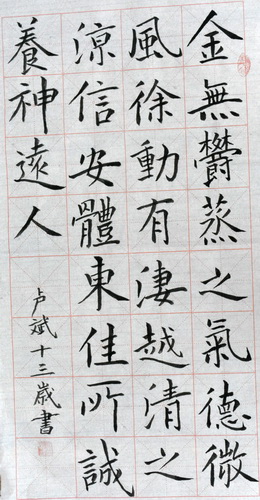 金無鬱蒸之氣德微
風徐動有淒越清之
涼信安體東佳所誠
養神遠人
卢斌十三歲書